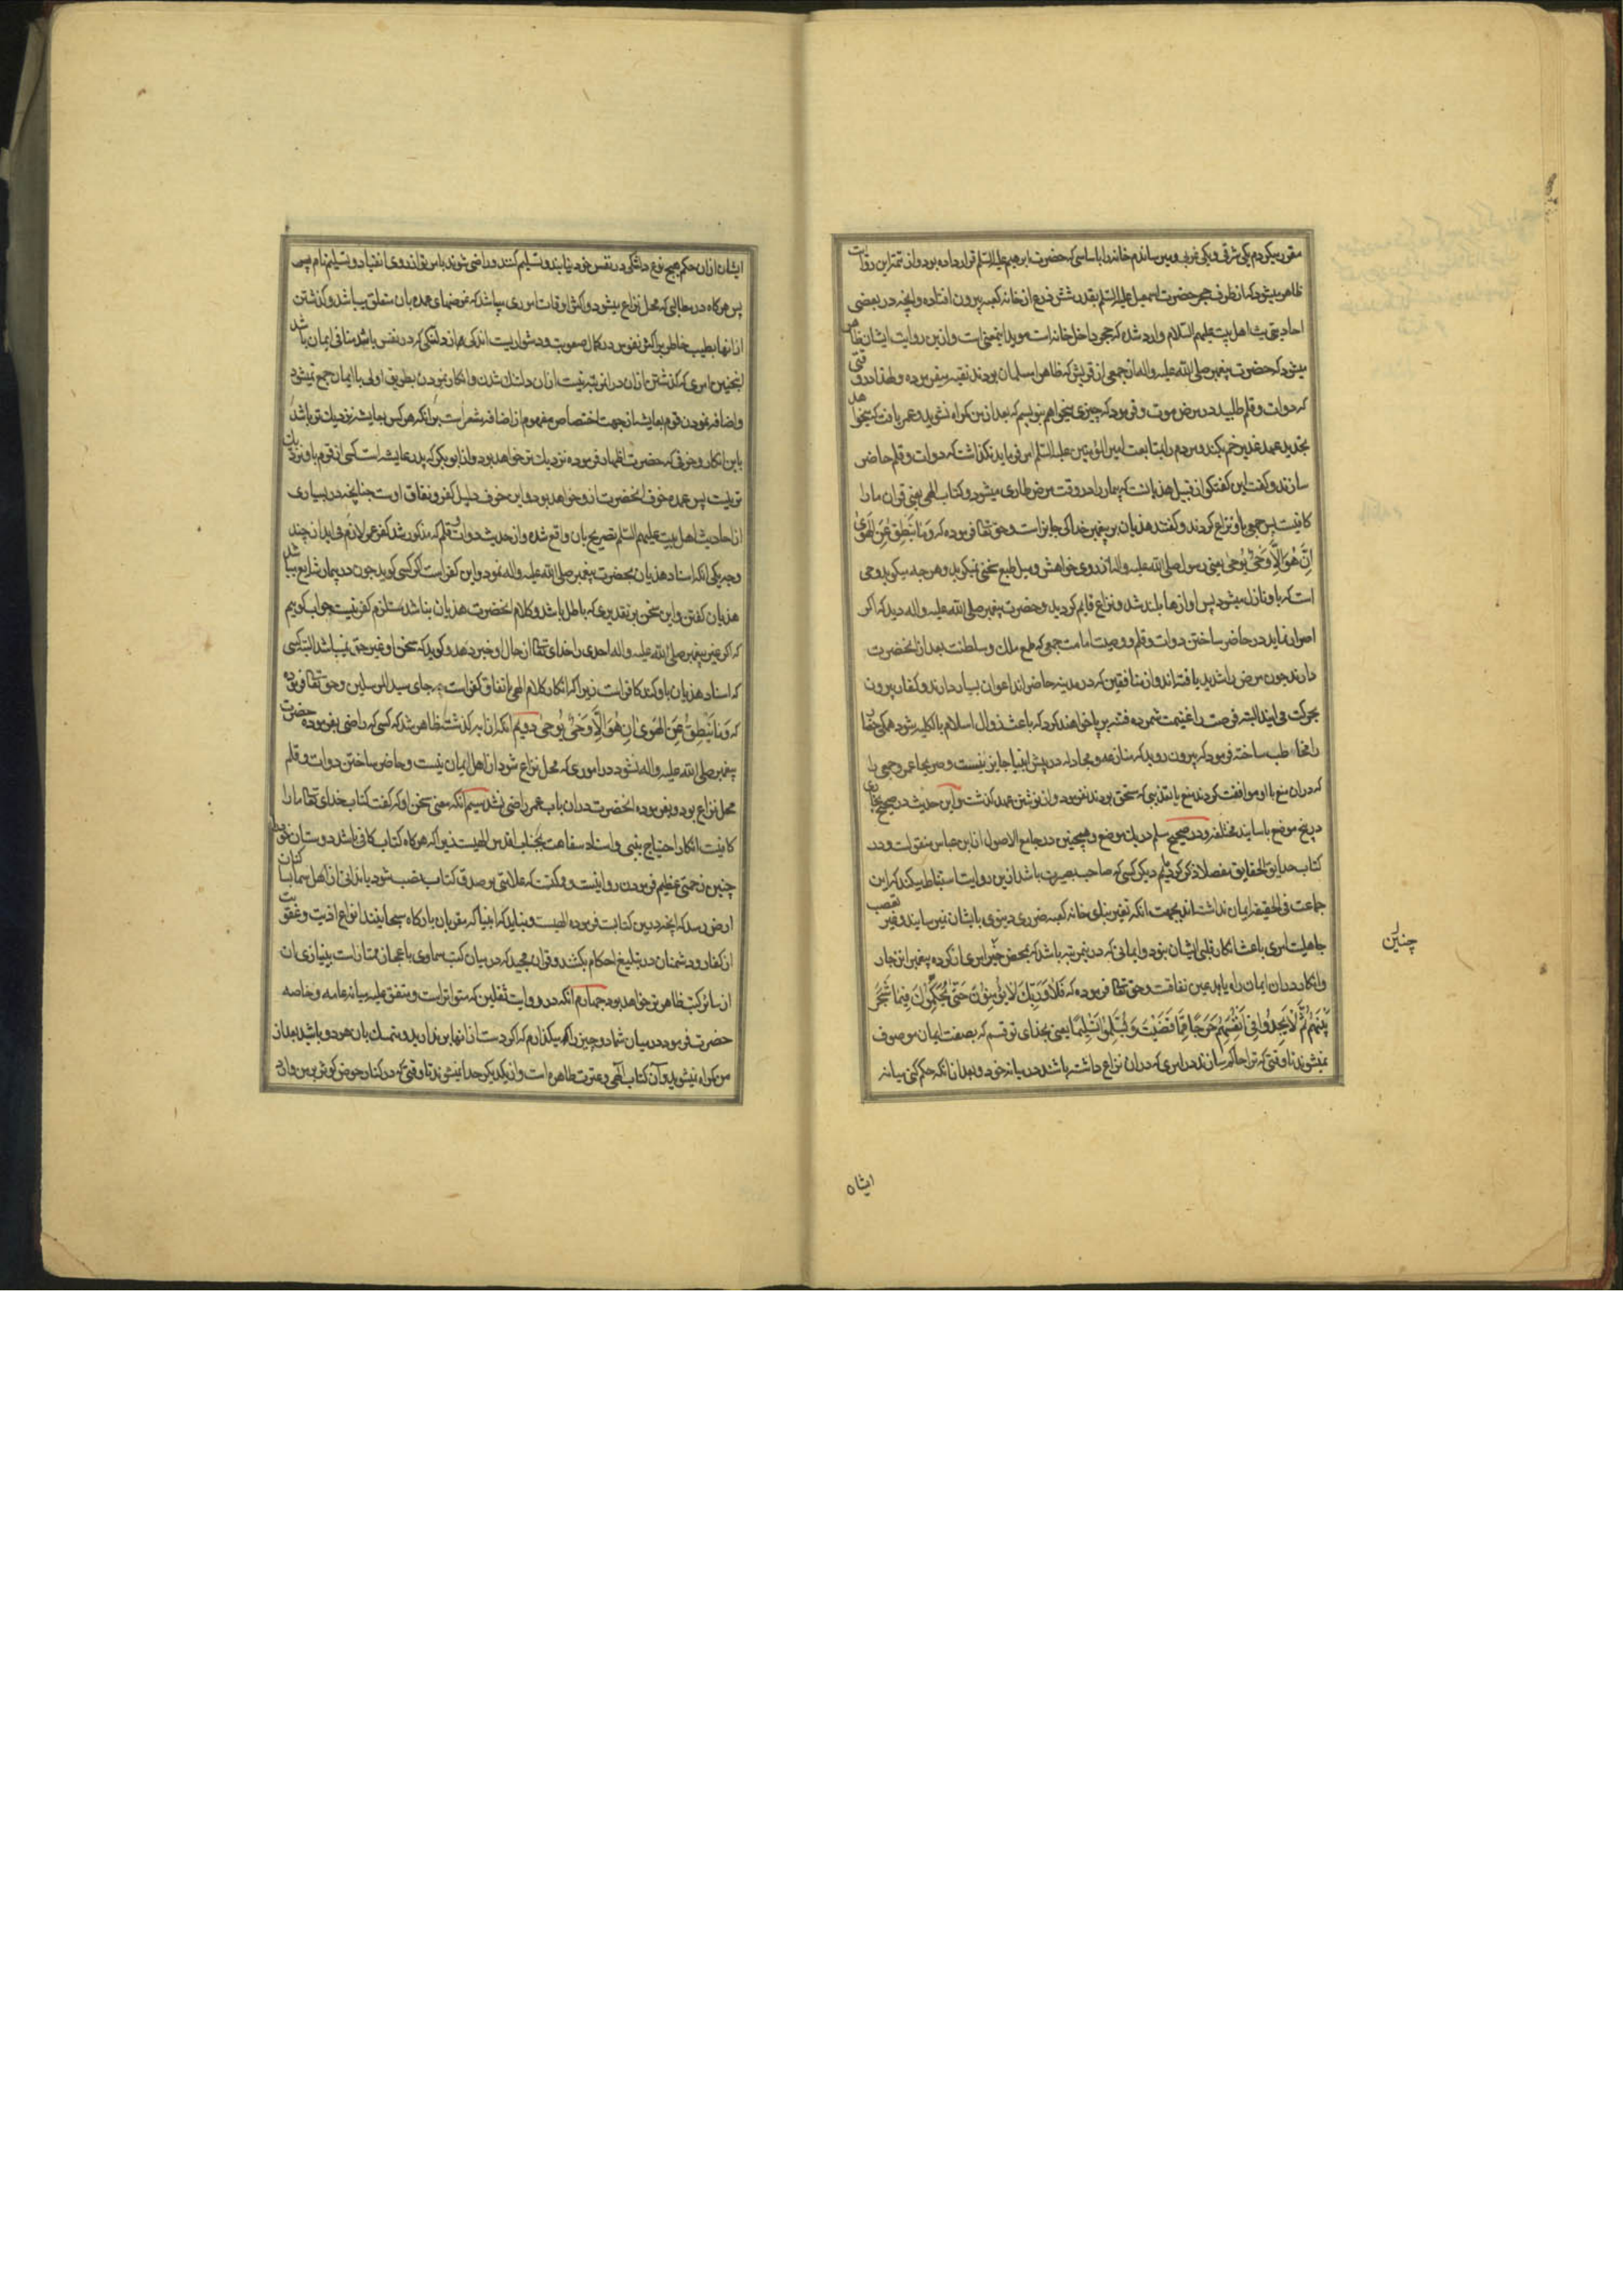 مقرر میکردم یکی شرقی و یکی غربی و میرساندم خانه را باساسی که حضرت ابرهیم علیه السلم قرار داده بود و از تتمه این روایت
ظاهر میشود که از طرف حجر حضرت اسمعیل علیه السلم بقدر شش ذرع از خانه کعبه بیرون افتاده و انچه در بعضی
احادیث اهل بیت علیهم السلام وارد شده که حجر داخل خانه است موید اینمعنی است و ازین روایت ایشان ظاهر
میشود که حضرت پیغمبر صلی الله علیه واله از جمعی از قریش که ظاهرا مسلمان بودند تقیه میفرموده و لهذا در وقتی
که دوات و قلم طلبید در مرض موت و فرمود که چیزی میخواهم بنویسم که بعد از من کمراه نشوید و عمر یافت که میخواهد
تجدید عهد غدیر خم بکند و مردم را بمتابعت امیر المؤمنین علیه السلم امر فرماید نکذاشت که دوات و قلم حاضر
سازند و کفت این کفتکو از قبیل هذیانست که بیمار را در وقت مرض طاری میشود و کتاب الهی یعنی قران ما را
کافیست پس جمعی با او نزاع کردند و کفتند هذیان بر پیغمبر خدا کی جایز است و حق تعالی فرموده که وَمَا یَنْطِقُ عَنِ الْهَوٰی
اِنْ هُوَ اِلَّا وَحْیٌ یُوحٰی یعنی رسول صلی الله علیه واله از روی خواهش و میل طبع سخنی نمیکوید و هرچه میکوید وحی
است که باو نازل میشود پس اوازها بلند شد و نزاع قایم کردید و حضرت پیغمبر صلی الله علیه واله دید که اکر
اصرار نماید در حاضر ساختن دوات و قلم و وصیت امامت جمعی که طمع ملک و سلطنت بعد از انحضرت
دارند چون مرض را شدید یافته اند و از منافقین که در مدینه حاضر اند اعوان بسیار دارند و کفار بیرون
بحرکت می ایند البته فرصت را غنیمت شمرده فتنه برپا خواهند کرد که باعث زوال اسلام بالکلیه شود همکی حضار
را مخاطب ساخته فرمود که بیرون روید که منازعه و مجادله در پیش انبیا جایز نیست و صریحا عمر و جمعی را
که دران منع با او موافقت کردند منع یا تندیبی که مستحق بودند نفرمود و از نوشتن عهد کذشت و این حدیث در صحیح بخاری
در پنج موضع باسانید مختلفه و در صحیح مسلم در یک موضع و همچنین در جامع الاصول از ابن عباس متفق است و در
کتاب حدایق الحقایق مفصلا ذکر کردیم دیکر کسی که صاحب بصیرت باشد ازین روایت استنباط میکند که این
جماعت فی الحقیقه ایمان نداشته اند بجهت انکه تغییر بنای خانه کعبه ضرری دینوی بایشان نمیرساند و غیر تعصب
جاهلیت امری باعث انکار قلبی ایشان نبود و ایمانی که درین مرتبه باشد که بمحض خبر امری از کرده پیغمبر انزجار
و انکار دران ایمان راه یابد عین نفاقست و حق تعالی فرموده که فَلَا وَرَبِّکَ لَا یُؤْمِنُونَ حَتّٰی یُحَکِّمُوکَ فِیمَا شَجَرَ
بَیْنَهُمْ ثُمَّ لَا یَجِدُوا فِی اَنْفُسِهِمْ حَرَجًا مِمَّا قَضَیْتَ وَیُسَلِّمُوا تَسْلِیمًا یعنی بخدای تو قسم که بصفت ایمان موصوف
نمیشوند تا وقتی که ترا حاکم سازند در امری که دران نزاع داشته باشند در میانه خود و بعد از انکه حکم کنی میانه
چنین
ایشان
ایشان ازان حکم هیچ نوع دلتنکی در نفس خود نیابند و تسلیم کنند و راضی شوند بامر تو از روی انقیاد و تسلیم تام پس
پس هرکاه در حالتی که محل نزاع میشود و اکثر اوقات اموری میباشد که غرضهای عمده بان متعلق میباشد و کذشتن
از انها بطیب خاطر بر اکثر نفوس در کمال صعوبت و دشواریست اندکی هم از دلتنکی که در نفس باشد منافی ایمان باشد
اینچنین امری که کذشتن ازان دران مرتبه نیست ازان دلتنک شدن و انکار نمودن بطریق اولی با ایمان جمع نمیشود
و اضافه نمودن قوم بعایشه از جهت اختصاص مفهوم از اضافه مشعر است برانکه هر کس بعایشه نزدیک تر باشد
باین انکار و خوفی که حضرت اظهار فرموده نزدیک تر خواهد بود و از ابوبکر که پدر عایشه است کسی از قوم باو نزدیک
تر نیست پس عمده خوف انحضرت ازو خواهد بود و این خوف دلیل کفر و نفاق اوست چنانچه در بسیاری
از احادیث اهل بیت علیهم السلم تصریح بان واقع شده و از حدیث دوات و قلم که مذکور شد کفر عمر لازم می اید از چند
وجه یکی انکه اسناد هذیان بحضرت پیغمبر صلی الله علیه واله نمود و این کفر است اکر کسی کوید چون در بیمار شایع میباشد
هذیان کفتن و این سخن بر تقدیری که باطل باشد و کلام انحضرت هذیان نباشد مستلزم کفر نیست جواب کوییم
که اکر غیر پیغمبر صلی الله علیه واله احدی را خدای تعالی از حال او خبر دهد و کوید که سخن او غیر حق نمیباشد البته کسی
که اسناد هذیان باو کند کافر است زیرا که انکار کلام الهی باتفاق کفر است چه جای سید المرسلین و حق تعالی فرموده
که وَمَا یَنْطِقُ عَنِ الْهَوٰی اِنْ هُوَ اِلَّا وَحْیٌ یُوحٰی دویم انکه از ایه کذشته ظاهر شد که کسی که راضی بفرموده حضرت
پیغمبر صلی الله علیه واله نشود در اموری که محل نزاع شود از اهل ایمان نیست و حاضر ساختن دوات و قلم
محل نزاع بود و بفرموده انحضرت دران باب عمر راضی نشد سیم انکه معنی سخن او که کفت کتاب خدای تعالی ما را
کافیست انکار احتیاج بنبی و اسناد سفاهت بجناب اقدس الهیست زیرا که هرکاه کتاب کافی باشد دوستان خود را
چنین زحمتی عظیم فرمودن روا نیست و میکفت که علامتی بر صدق کتاب نصب شود یا ندائی از اهل سما باسا کنان
ارض رسد که انچه درین کتابست فرموده الهیست و نباید که انبیا که مقربان بارکاه سبحانیند انواع اذیت و عقوبت
از کفار و دشمنان در تبلیغ احکام بکشند و قران مجید که در میان کتب سماوی باعجاز ممتاز است بینیازی ان
از سائر کتب ظاهر تر خواهد بود چهارم انکه در روایت ثقلین که متواتر است و متفق علیه میانه عامه و خاصه
حضرت فرمود در میان شما دو چیز را میکذارم که اکر دست از انها بر ندارید و متمسک بان هر دو باشید بعد از
من کمراه نمیشوید و آن کتاب الهی و عترت طاهره است و از یکدیکر جدا نمیشوند تا وقتی که در کنار حوض کوثر بر من وارد